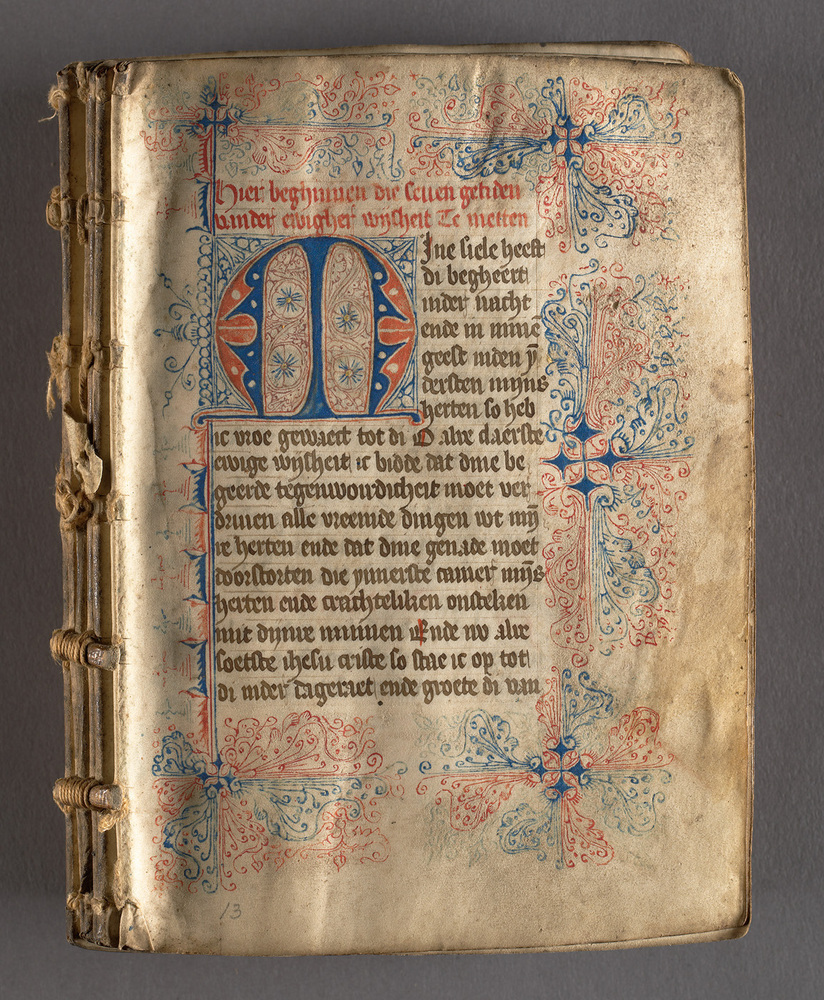 Hier beghinnen die seuen getiden
vander ewigher wijsheit Te metten
Mine siele heeft
di begheert
inder nacht
ende in mine
geest inden ȳ
dersten mijns
herten so heb
ic vroe gewaect tot di O alre claerste
ewige wijsheit ic bidde dat dine be
geerde tegenwoirdicheit moet ver
driuen alle vreemde dingen wt mij
re herten ende dat dine genade moet
doorstorten die ynnerste camer mijns
herten ende crachteliken onsteken
mit dijnre minnen Ende nv alre
soetste ihesu criste so stae ic op tot
di inder dageraet ende groete di van
13